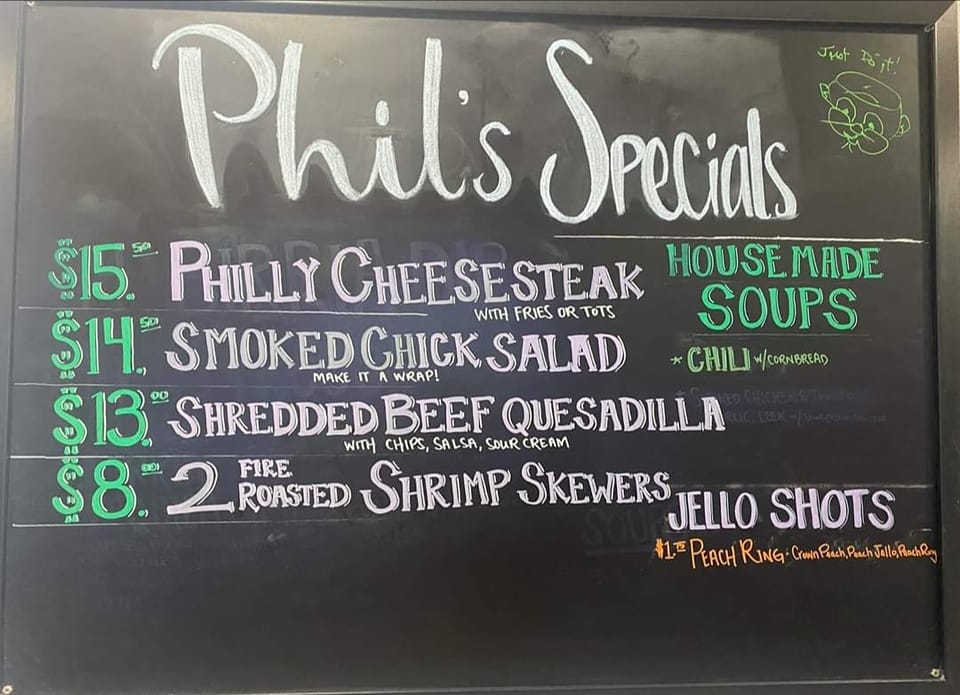 Phil's Specials
Just Do it!
$15.50 PHILLY CHEESESTEAK
WITH FRIES OR TOTS
$14.50 SMOKED CHICK SALAD
MAKE IT A WRAP!
$13.00 SHREDDED BEEF QUESADILLA
WITH CHIPS, SALSA, SOUR CREAM
$8.00 2 FIRE ROASTED SHRIMP SKEWERS
HOUSE MADE
SOUPS
* CHILI W/CORNBREAD
JELLO SHOTS
PEACH RING - Crown Peach, Peach Jello, Peach Ring